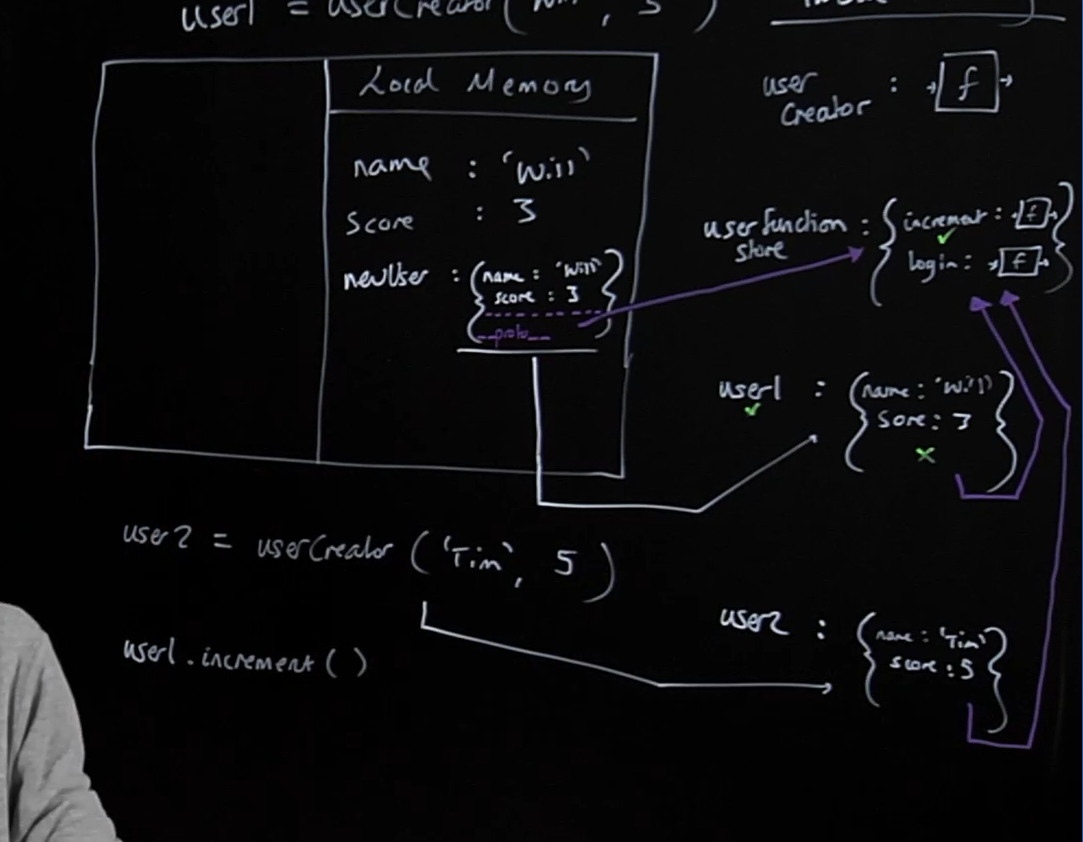 user1 = userCreator('Will', 3)
Local Memory
name : 'Will'
score : 3
newUser : {name : 'Will'
score : 3
__proto__}
user2 = userCreator('Tim', 5)
user1.increment()
user
Creator : f
userFunction
store : {increment : f
login : f}
user1 : {name : 'Will'
Sore : 3}
user2 : {name : 'Tim'
score : 5}